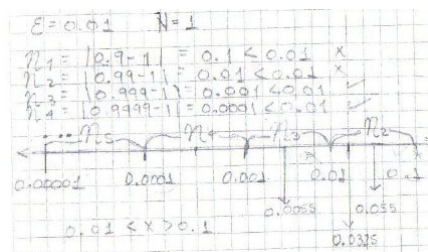 ε = 0.01 N = 1
n₁ = |0.9-1| = 0.1 < 0.01 ×
n₂ = |0.99-1| = 0.01 < 0.01 ×
n₃ = |0.999-1| = 0.001 < 0.01 ✓
n₄ = |0.9999-1| = 0.0001 < 0.01 ✓
... n₅ n₄ n₃ n₂
0.00001 0.0001 0.001 0.01 0.1
0.0055 0.055
0.01 < x > 0.1
0.0325